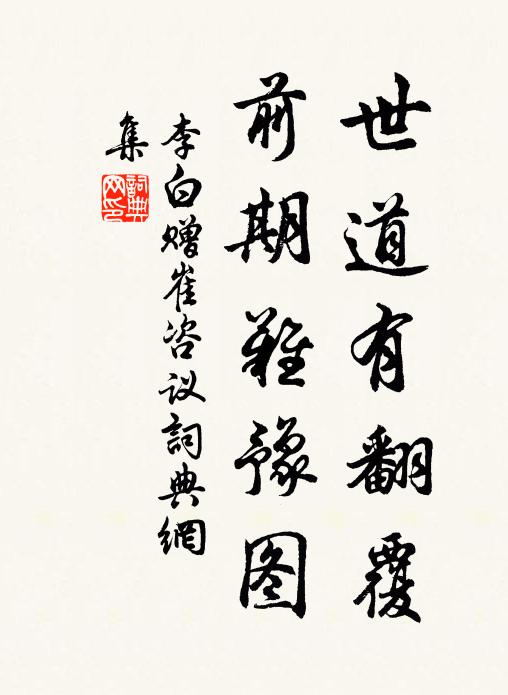 世道有翻覆
前期难豫图
李白赠崔咨议詞典網
集
詞典網印